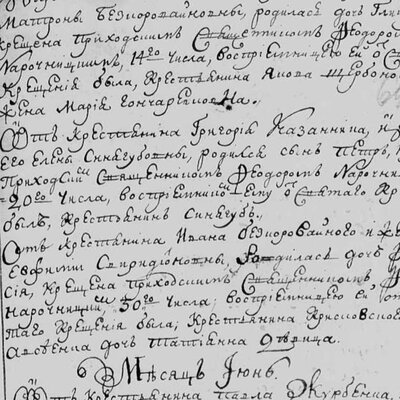 Матроны Безноровайновны, родилась дочь
Крещена приходскимъ Священникомъ Ѳеодоромъ
Нарочницкимъ, 14го числа, воспріемницею ей отъ С
Крещенія была, Крестьянина Якова Щербоно
жена Марія Гончаренкова.
Отъ Крестьянина Григорія Казанника, и
Его Елены Синегубовны, родился сынъ Петръ,
Приходскимъ Священникомъ Ѳеодоромъ Нарочни
20го числа, воспріемникомъ Ему отъ Святаго Кр
былъ, Крестьянинъ Синегубъ.
Отъ Крестьянина Ивана Безноровайного и же
Евфиміи Спиридоновны, родилась дочь
сія, Крещена приходскимъ Священникомъ Ѳ
Нарочницкимъ 30го числа; воспріемницею ей от
таго Крещенія была; Крестьянина
дочь Татіянна дѣвица.
Мѣсяцъ Іюнь.
Отъ Крестьянина Павла Журбенка,